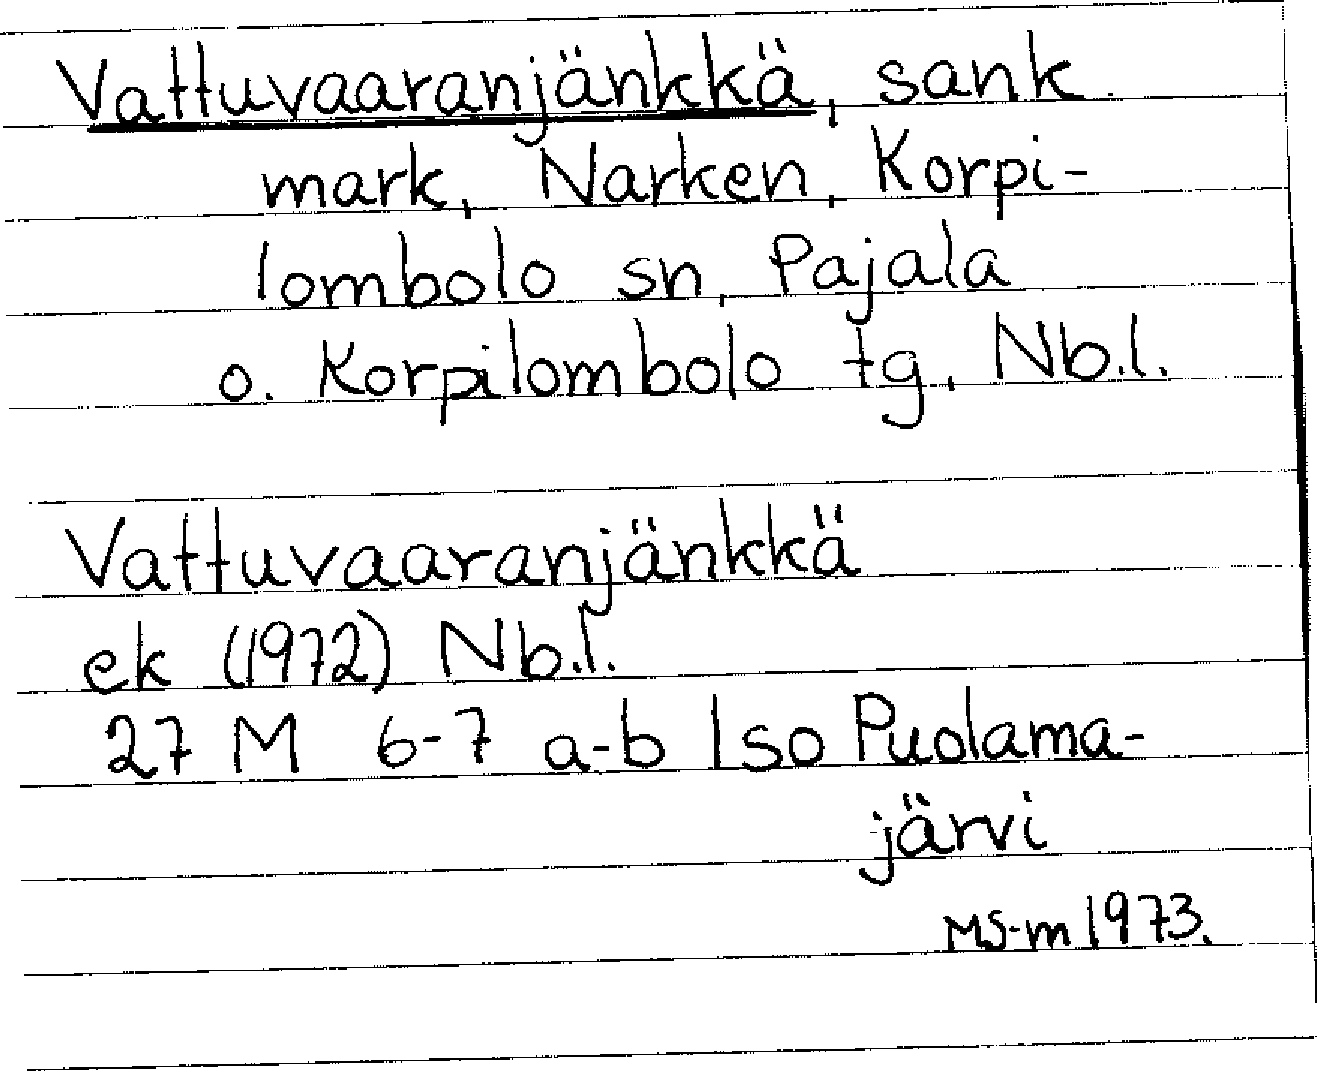 Vattuvaaranjänkkä, sank
mark, Narken, Korpi-
lombolo sn, Pajala
o. Korpilombolo tg, Nb.l.
Vattuvaaranjänkkä
ek (1972) Nb.l.
27 M 6-7 a-b Iso Puolama-
järvi
MS-m 1973.